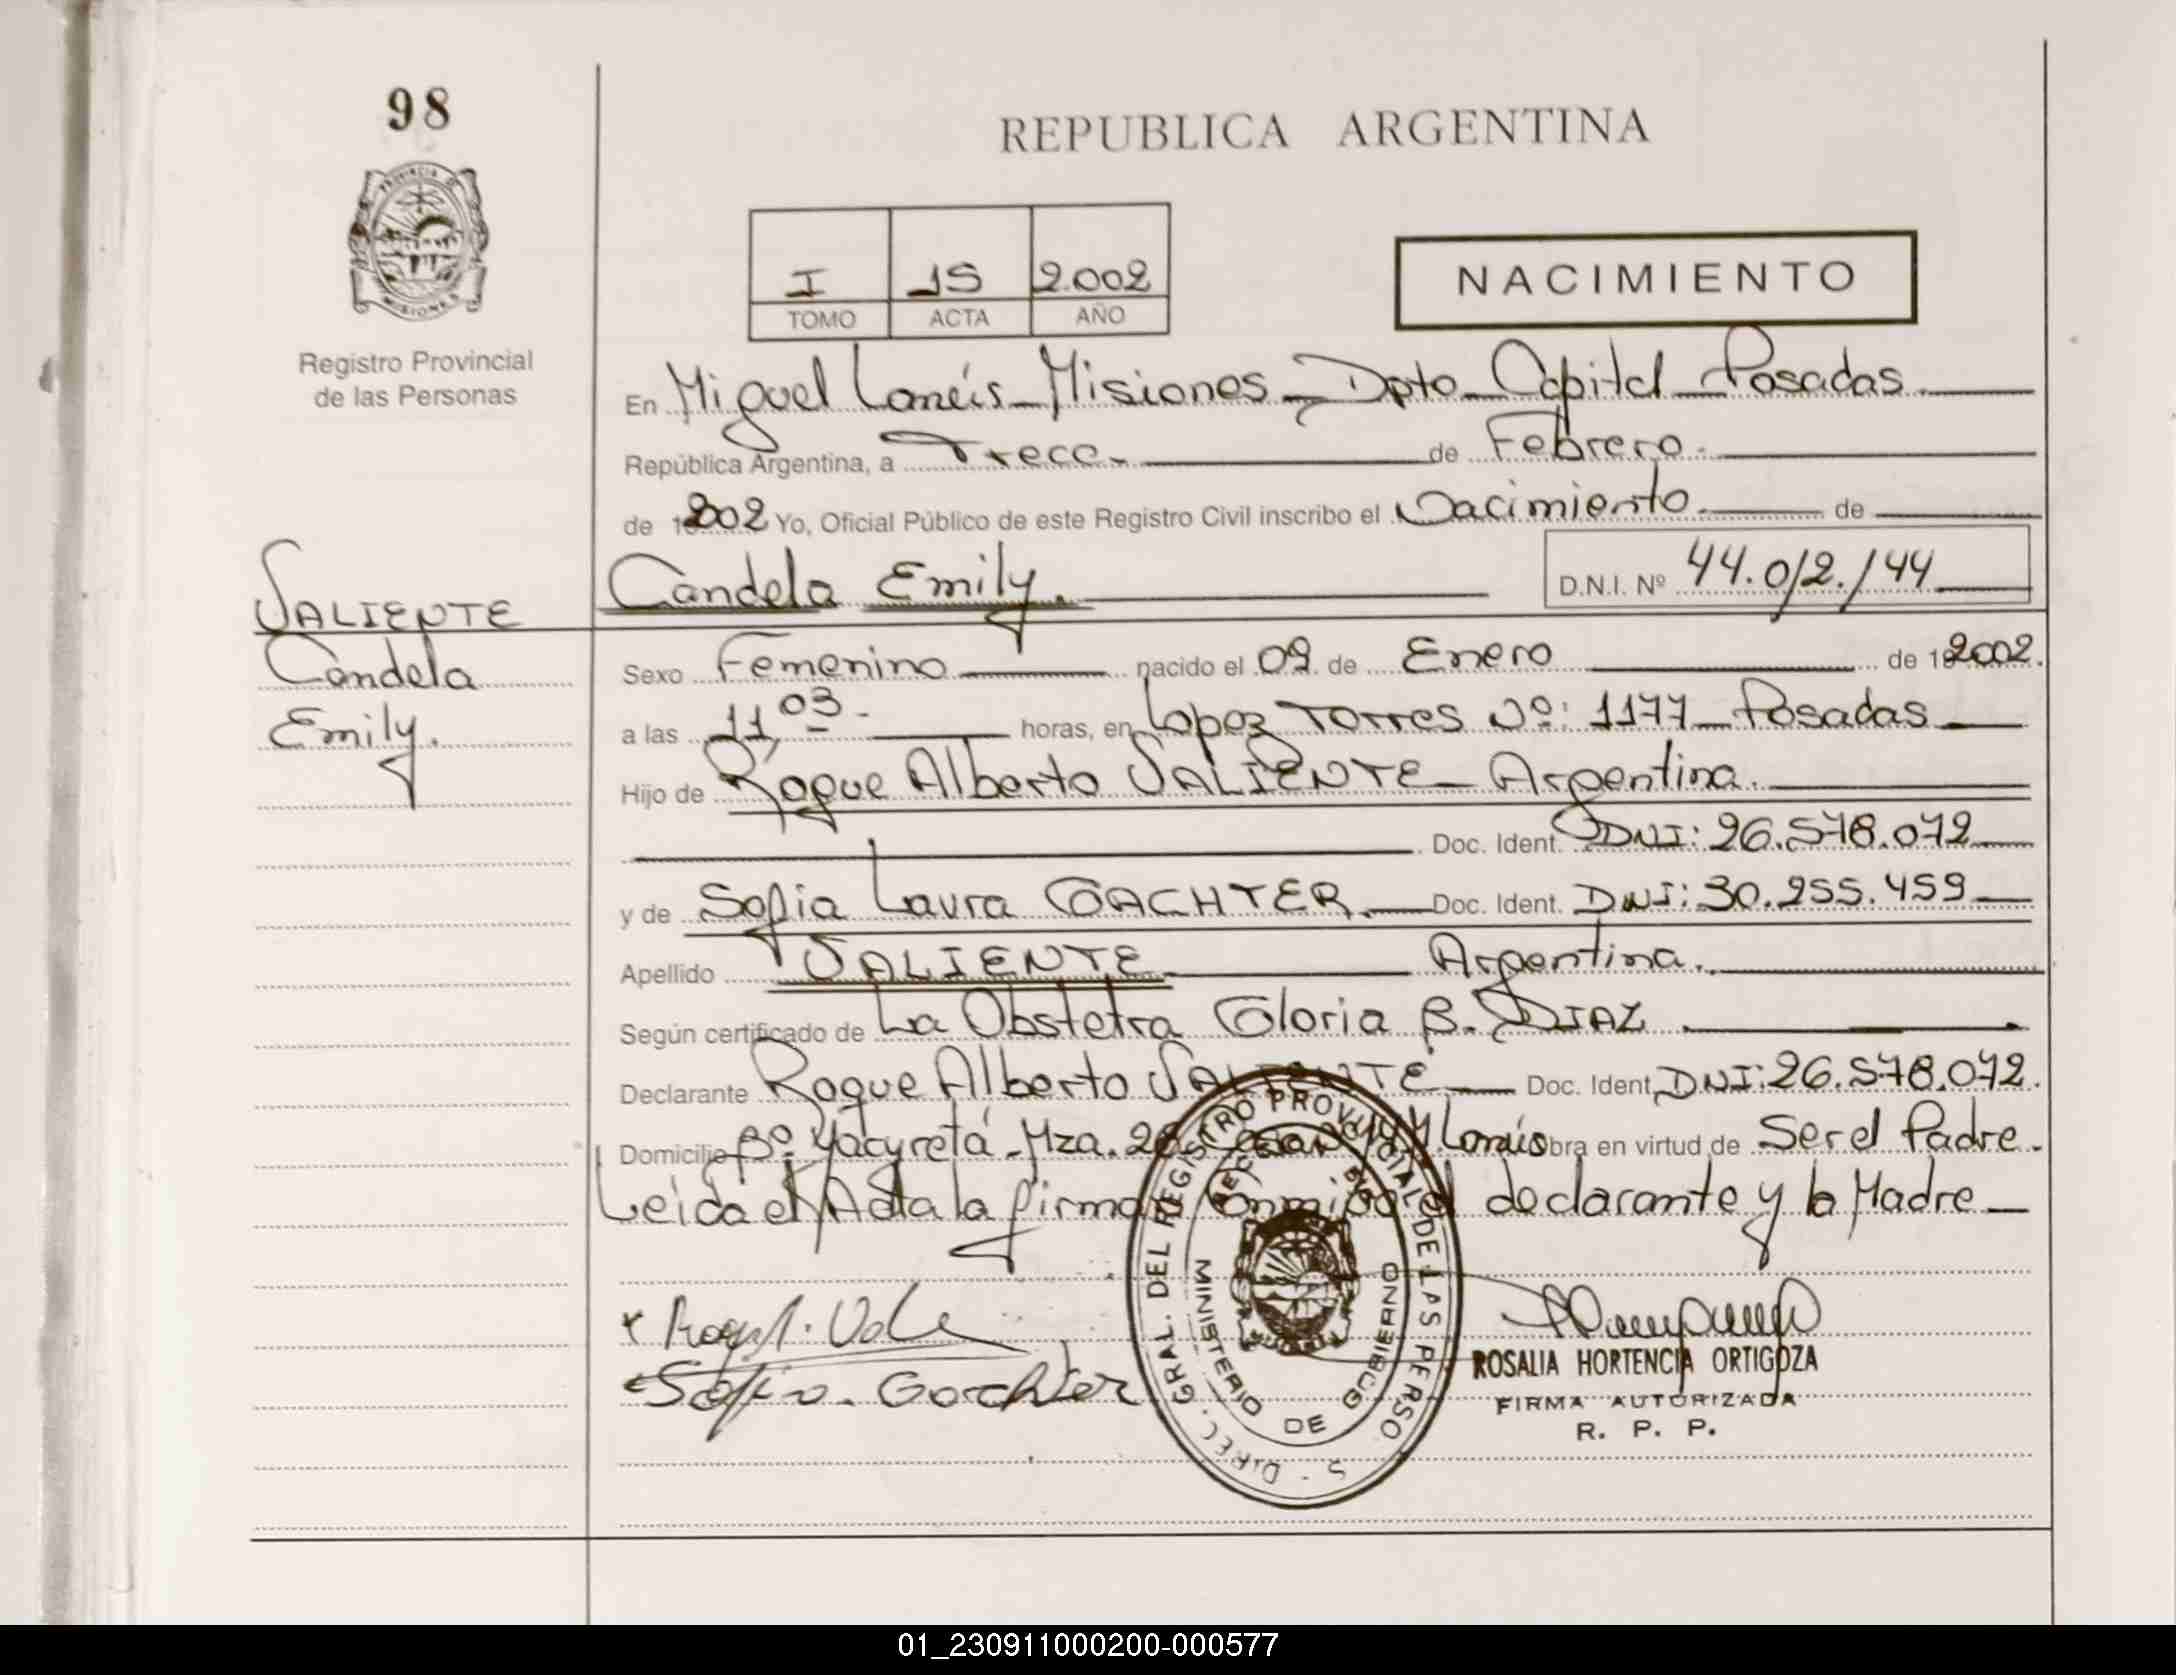 98
REPUBLICA ARGENTINA
PROVINCIA DE
MISIONES
Registro Provincial
de las Personas
I 15 2.002
TOMO ACTA AÑO
NACIMIENTO
En Miguel Lanús - Misiones - Dpto - Capital - Posadas
República Argentina, a Trece de Febrero.
de 2002 Yo, Oficial Público de este Registro Civil inscribo el Nacimiento de
Candela Emily. D.N.I. Nº 44.012.144
SALIENTE
Candela
Emily.
Sexo Femenino nacido el 09 de Enero de 2002.
a las 11,03 horas, en Lopez Torres Nº: 1177 - Posadas
Hijo de Roque Alberto SALIENTE - Argentina.
Doc. Ident. DNI: 26.578.072
y de Sofia Laura GACHTER. Doc. Ident. DNI: 30.255.459
Apellido SALIENTE Argentina.
Según certificado de La Obstetra Gloria B. DIAZ
Declarante Roque Alberto SALIENTE Doc. Ident. DNI: 26.578.072.
Domicilio Bº Yacyretá - Mza. 26 Lanús Obra en virtud de Ser el Padre.
Leida el Acta la firman conmigo el declarante y la Madre
Sofia Gachter
DIREC. GRAL. DEL REGISTRO PROVINCIAL DE LAS PERSO S
MINISTERIO DE GOBIERNO
ROSALIA HORTENCIA ORTIGOZA
FIRMA AUTORIZADA
R. P. P.
01_230911000200-000577